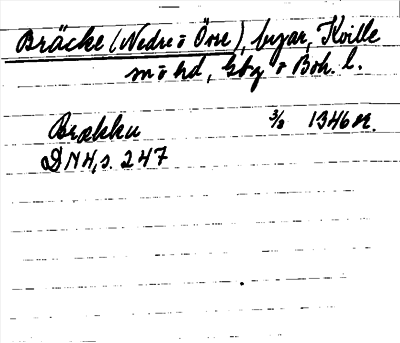 Bräcke (Nedre o Övre), byar, Kville
sn o hd, Gbg o Boh. l.
Brækku 3/8 1346 or.
DN 4, s. 247